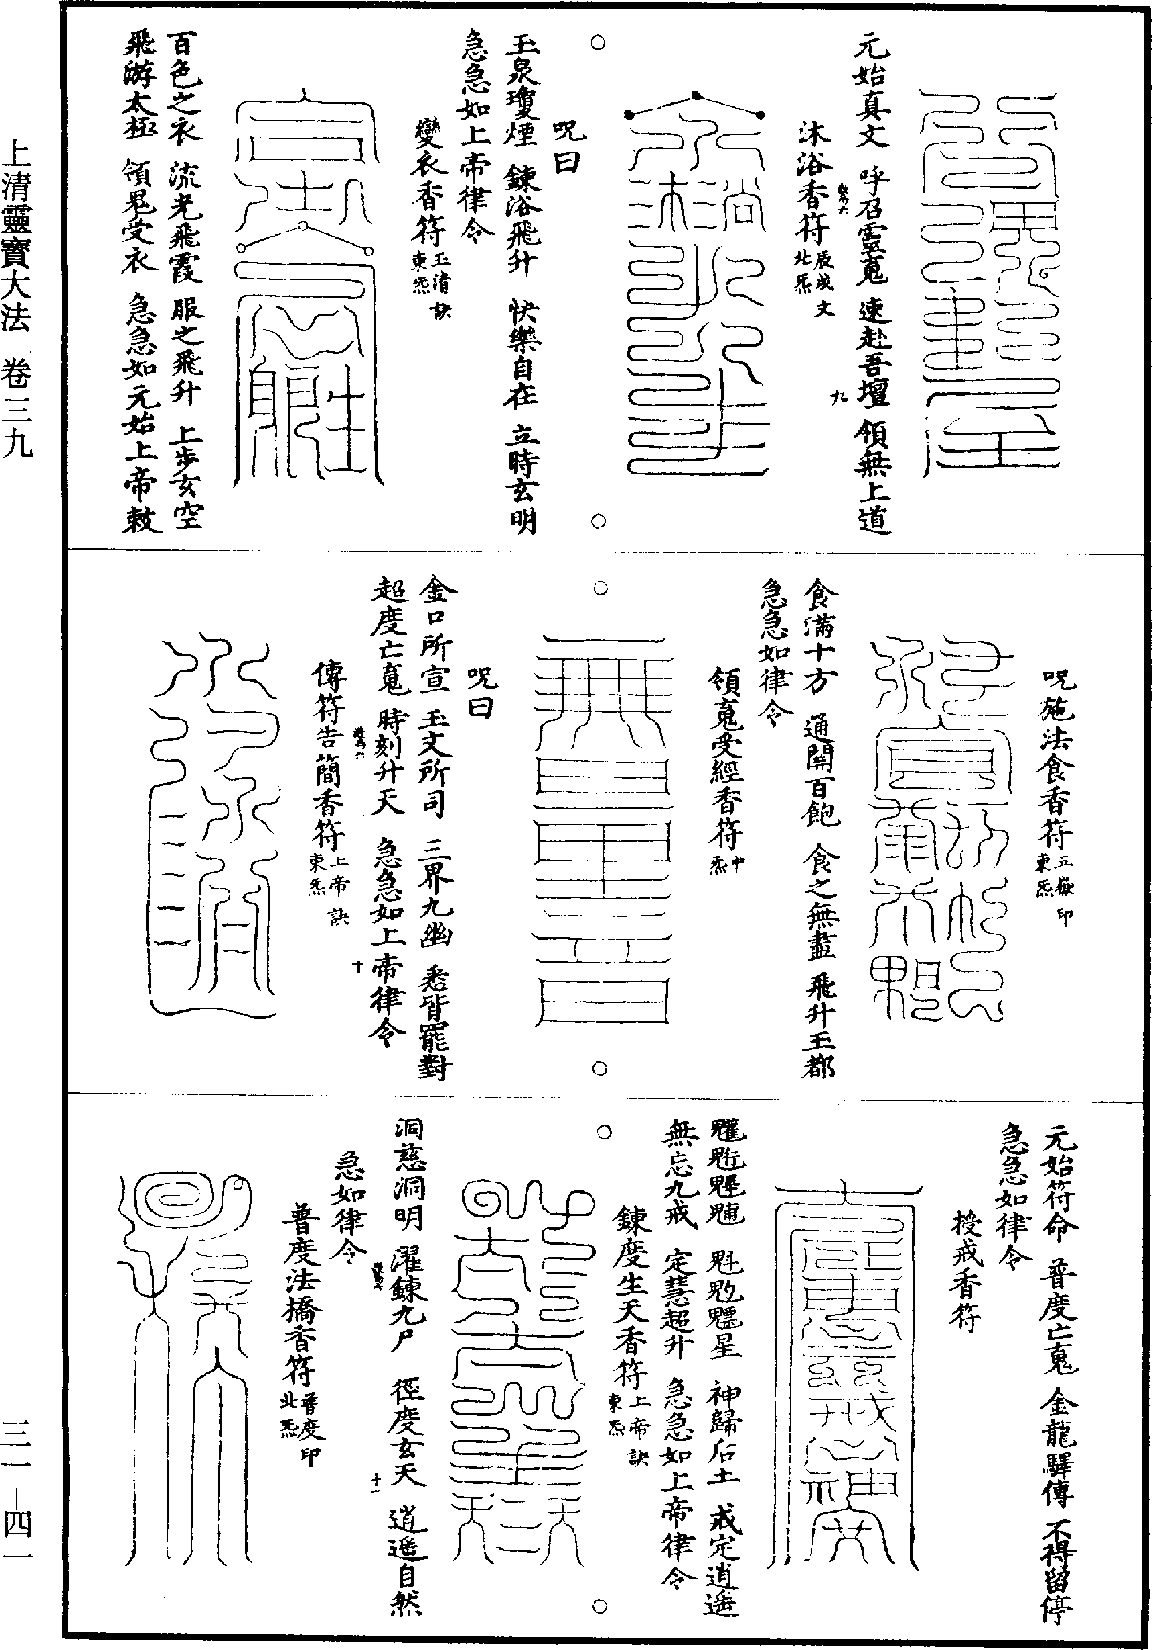 元始真文　呼召靈䰟　速赴吾壇　領無上道
沐浴香符
北炁
九
呪曰
玉泉瓊煙　鍊浴飛升　快樂自在　立時玄明
急急如上帝律令
變衣香符
玉清訣
東炁
百色之衣　流光飛霞　服之飛升　上步玄空
飛游太極　領䰟受衣　急急如元始上帝敕
呪施法食香符
五嶽印
東炁
食滿十方　通開百飽　食之無盡　飛升玉都
急急如律令
領䰟受經香符
中炁
呪曰
金口所宣　玉文所司　三界九幽　悉皆罷對
超度亡䰟　時刻升天　急急如上帝律令
十
傳符告簡香符
上帝訣
東炁
元始符命　普度亡䰟　金龍驛傳　不得留停
急急如律令
授戒香符
神歸后土　戒定逍遙
無忘九戒　定慧超升　急急如上帝律令
鍊度生天香符
上帝訣
東炁
洞慈洞明　濯鍊九尸　徑度玄天　逍遙自然
十一
急如律令
普度法橋香符
普度印
北炁
上清靈寶大法　卷三九
三一－四一